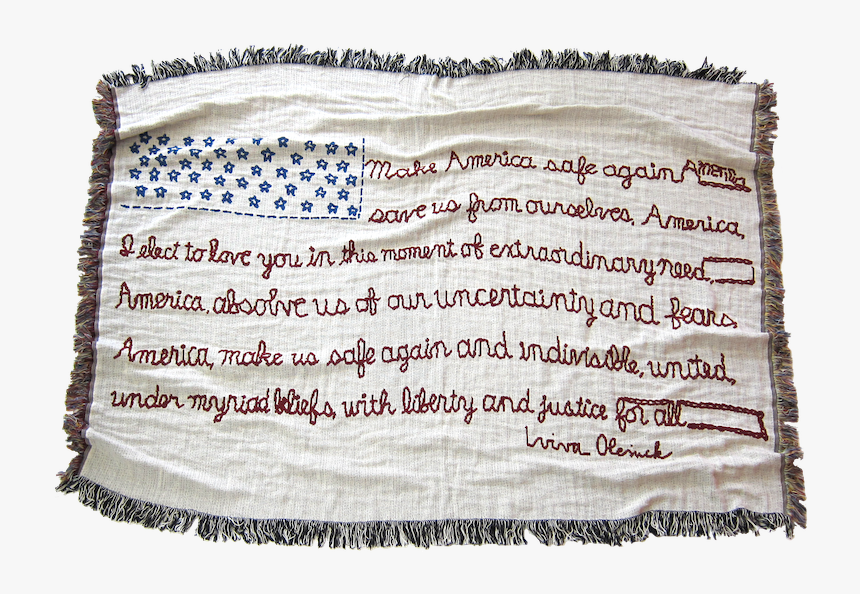 Make America safe again America
save us from ourselves, America,
I elect to love you in this moment of extraordinary need,
America, absolve us of our uncertainty and fears,
America, make us safe again and indivisible, united,
under myriad beliefs, with liberty and justice for all
Iviva Olenick